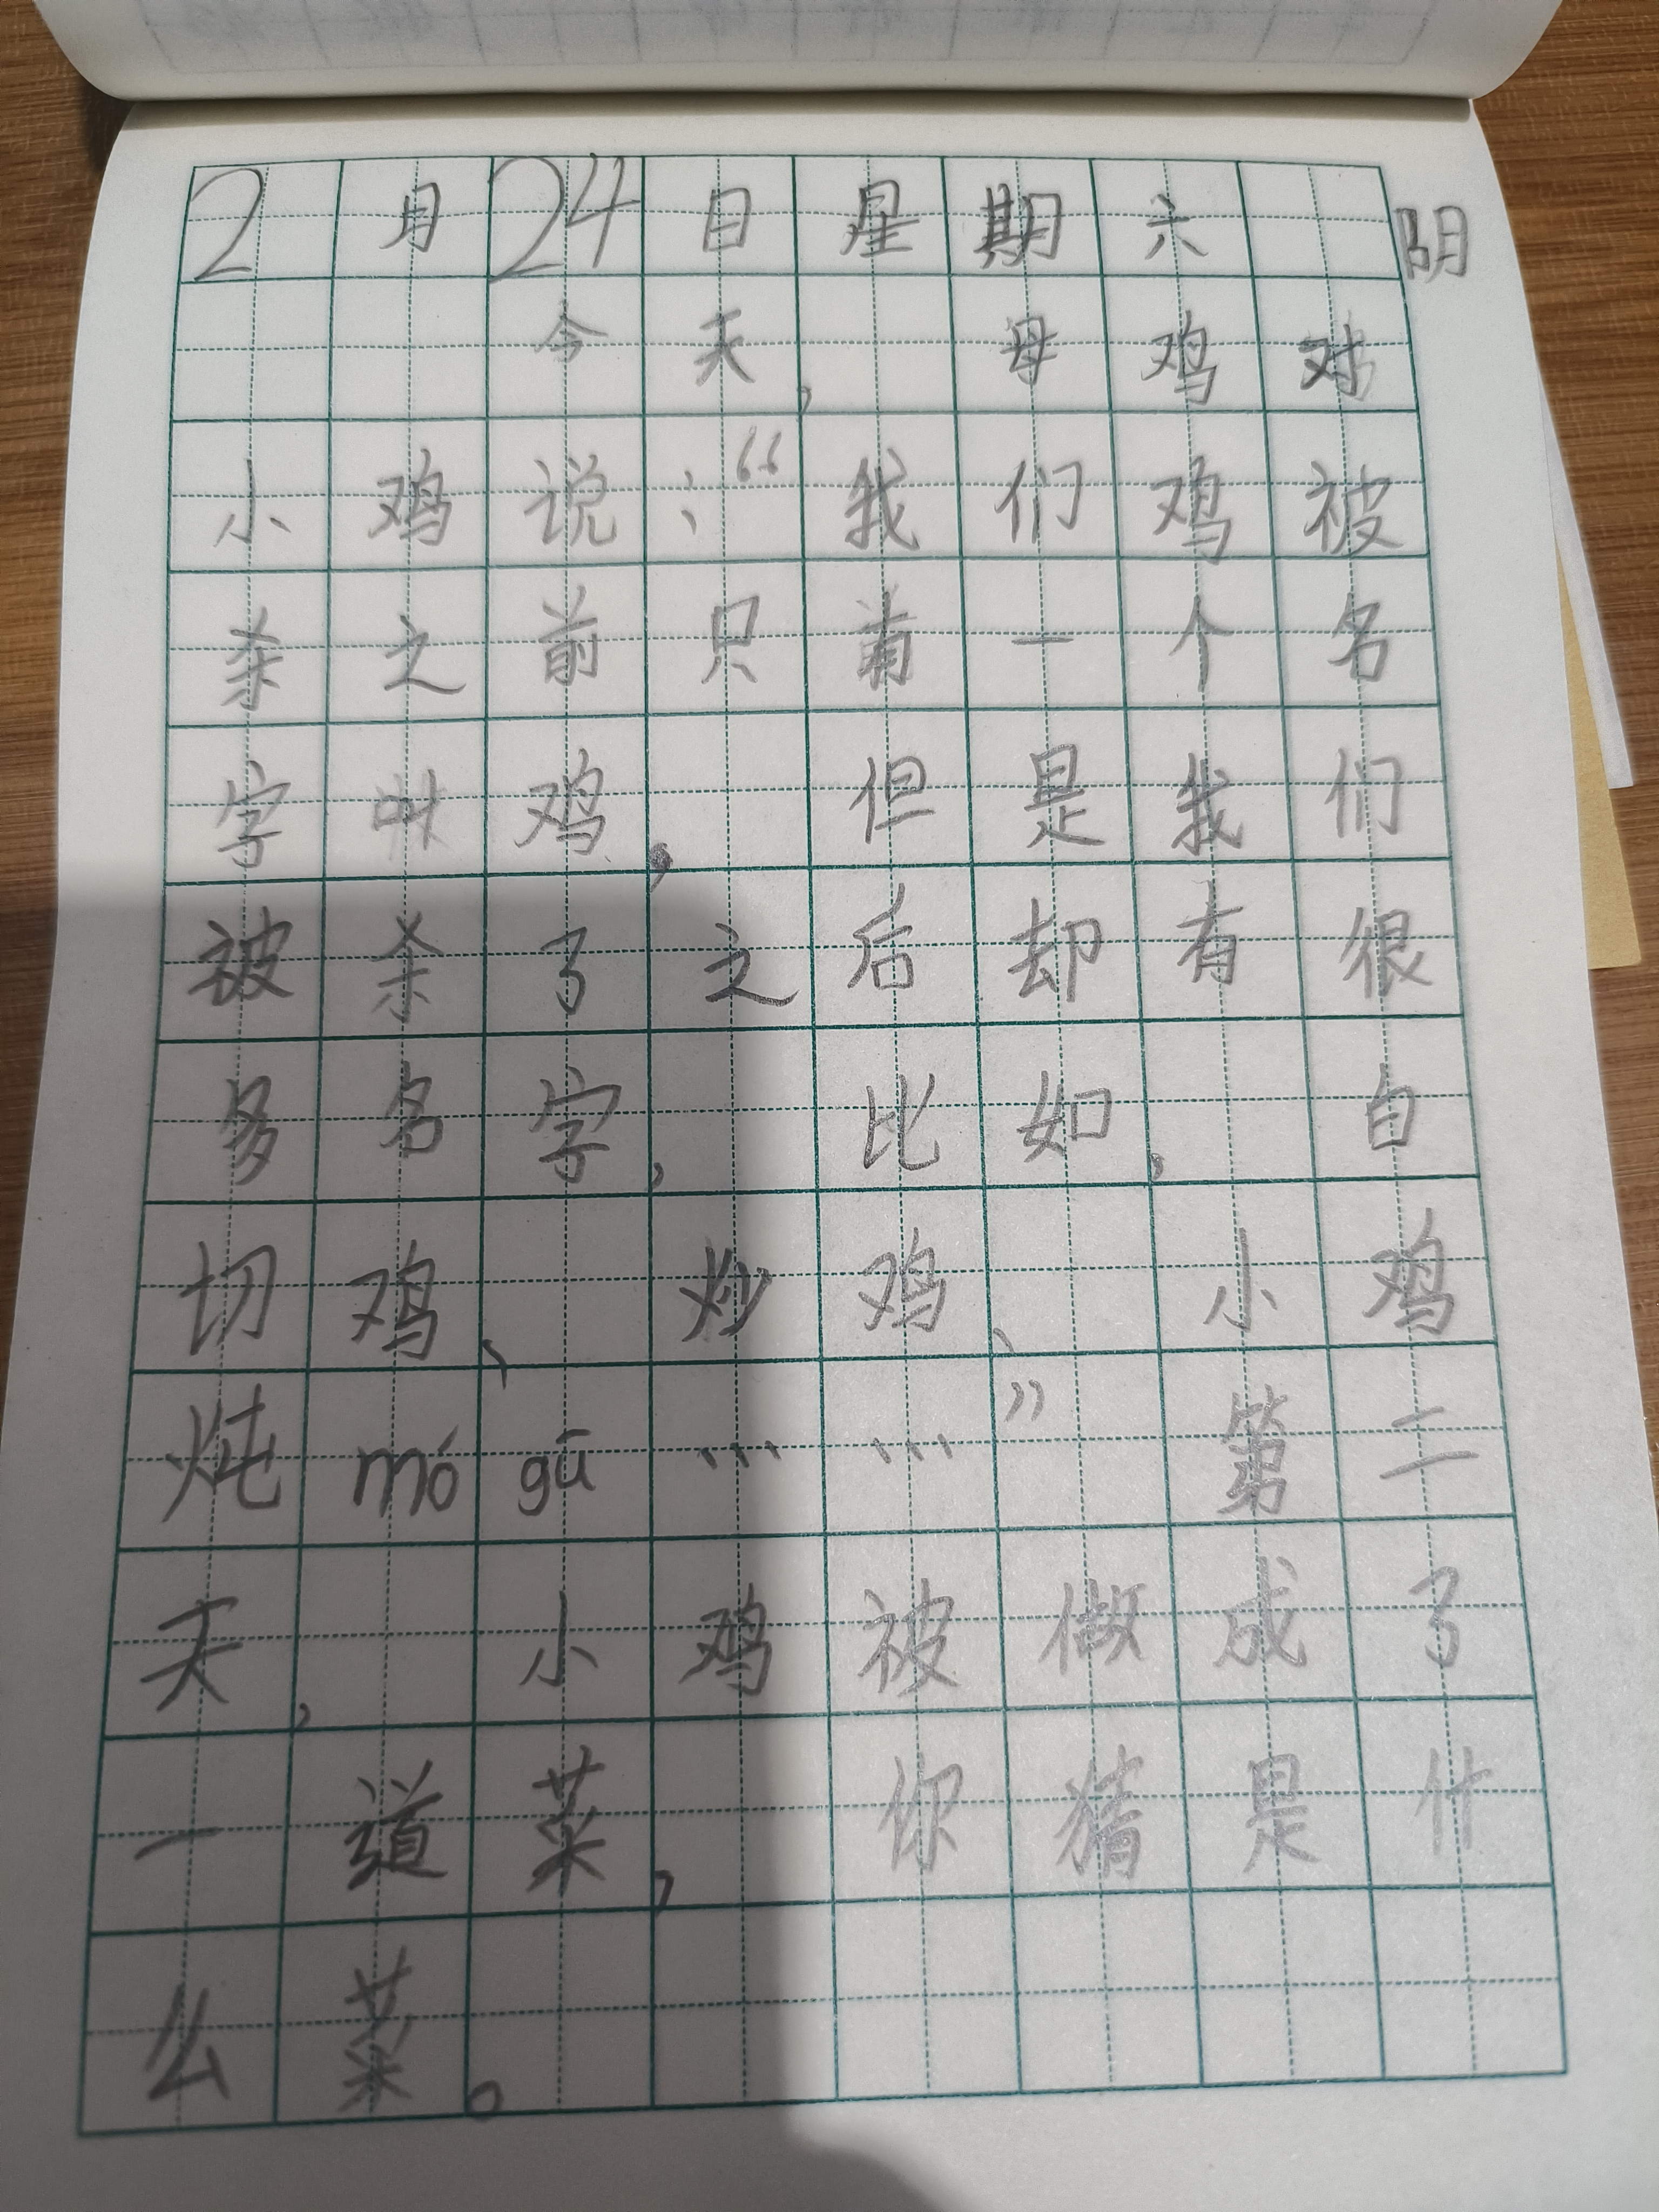 2月24日星期六 阴
今天,母鸡对
小鸡说:“我们鸡被
杀之前只有一个名
字叫鸡,但是我们
被杀了之后却有很
多名字,比如,白
切鸡、炒鸡、小鸡
炖mógū……”第二
天,小鸡被做成了
一道菜,你猜是什
么菜。